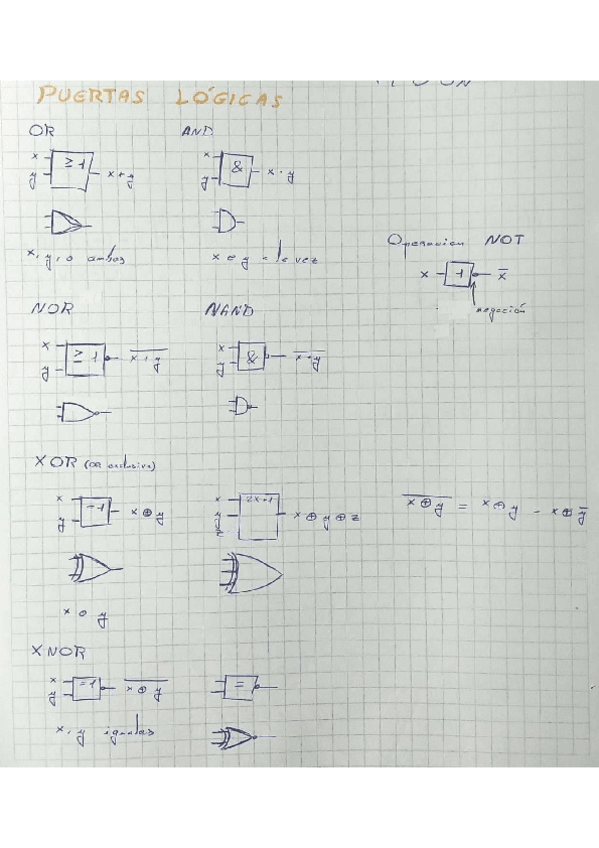 PUERTAS LÓGICAS
OR
AND
x
y
≥1
x+y
x
y
&
x·y
x, y, o ambos
x e y a la vez
Operación NOT
x
1
x̅
negación
NOR
NAND
x
y
≥1
x̅+̅y̅
x
y
&
x̅·̅y̅
XOR (OR exclusiva)
x
y
=1
x⊕y
x
y
z
2k+1
x⊕y⊕z
x̅⊕̅y̅ = x̅⊕y = x⊕y̅
x o y
XNOR
x
y
=1
x̅⊕̅y̅
=
x, y iguales